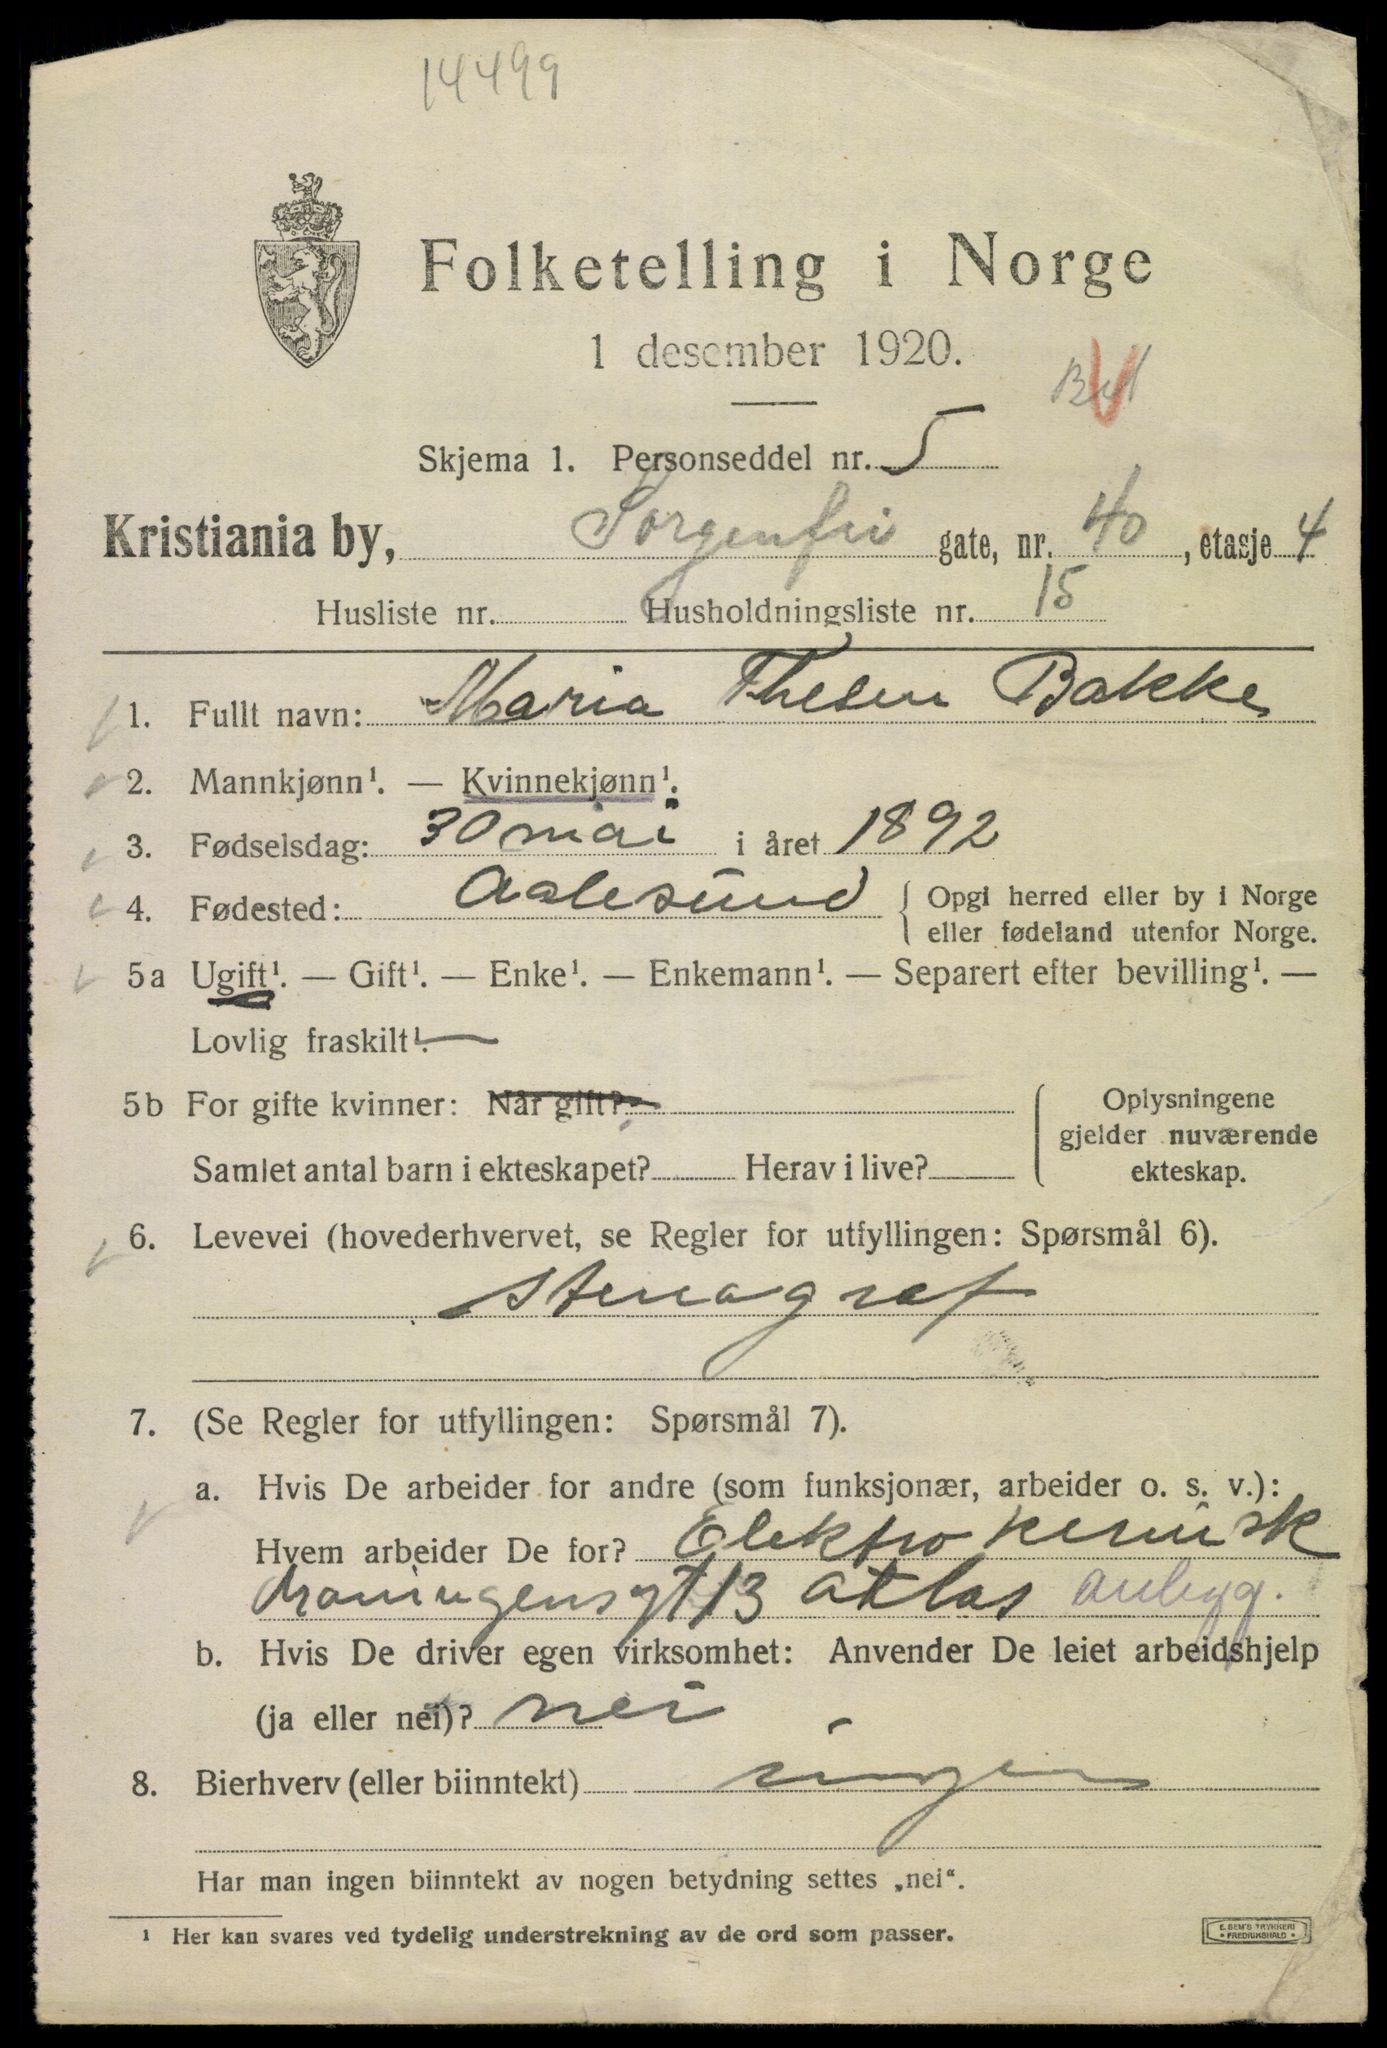 14499
Folketelling i Norge
1 desember 1920.
Skjema 1. Personseddel nr. 5
Kristiania by, Sorgenfri gate, nr. 40, etasje 4
Husliste nr. Husholdningsliste nr. 15
1. Fullt navn: Maria Thesen Bakke
2. Mannkjønn¹. — Kvinnekjønn¹.
3. Fødselsdag: 30 mai i året 1892
4. Fødested: Aalesund { Opgi herred eller by i Norge
eller fødeland utenfor Norge.
5a Ugift¹. — Gift¹. — Enke¹. — Enkemann¹. — Separert efter bevilling¹. —
Lovlig fraskilt¹.
5b For gifte kvinner: Når gift?
Samlet antal barn i ekteskapet? Herav i live?
Oplysningene
gjelder nuværende
ekteskap.
6. Levevei (hovederhvervet, se Regler for utfyllingen: Spørsmål 6).
Stenograf
7. (Se Regler for utfyllingen: Spørsmål 7).
a. Hvis De arbeider for andre (som funksjonær, arbeider o. s. v.):
Hvem arbeider De for? Elektro kemisk
dronningensgt 13 atlas
b. Hvis De driver egen virksomhet: Anvender De leiet arbeidshjelp
(ja eller nei)? nei
8. Bierhverv (eller biinntekt) ingen
Har man ingen biinntekt av nogen betydning settes „nei“.
¹ Her kan svares ved tydelig understrekning av de ord som passer.
E. SEM'S TRYKKERI
• FREDRIKSHALD •